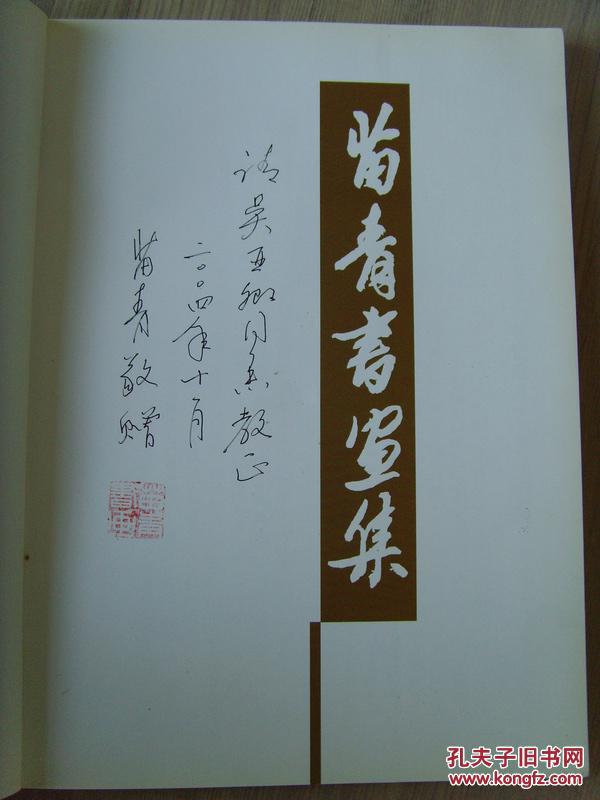 苗青書畫集
请吴亚卿同志教正
二〇〇四年十月
苗青敬赠
孔夫子旧书网
www.kongfz.com